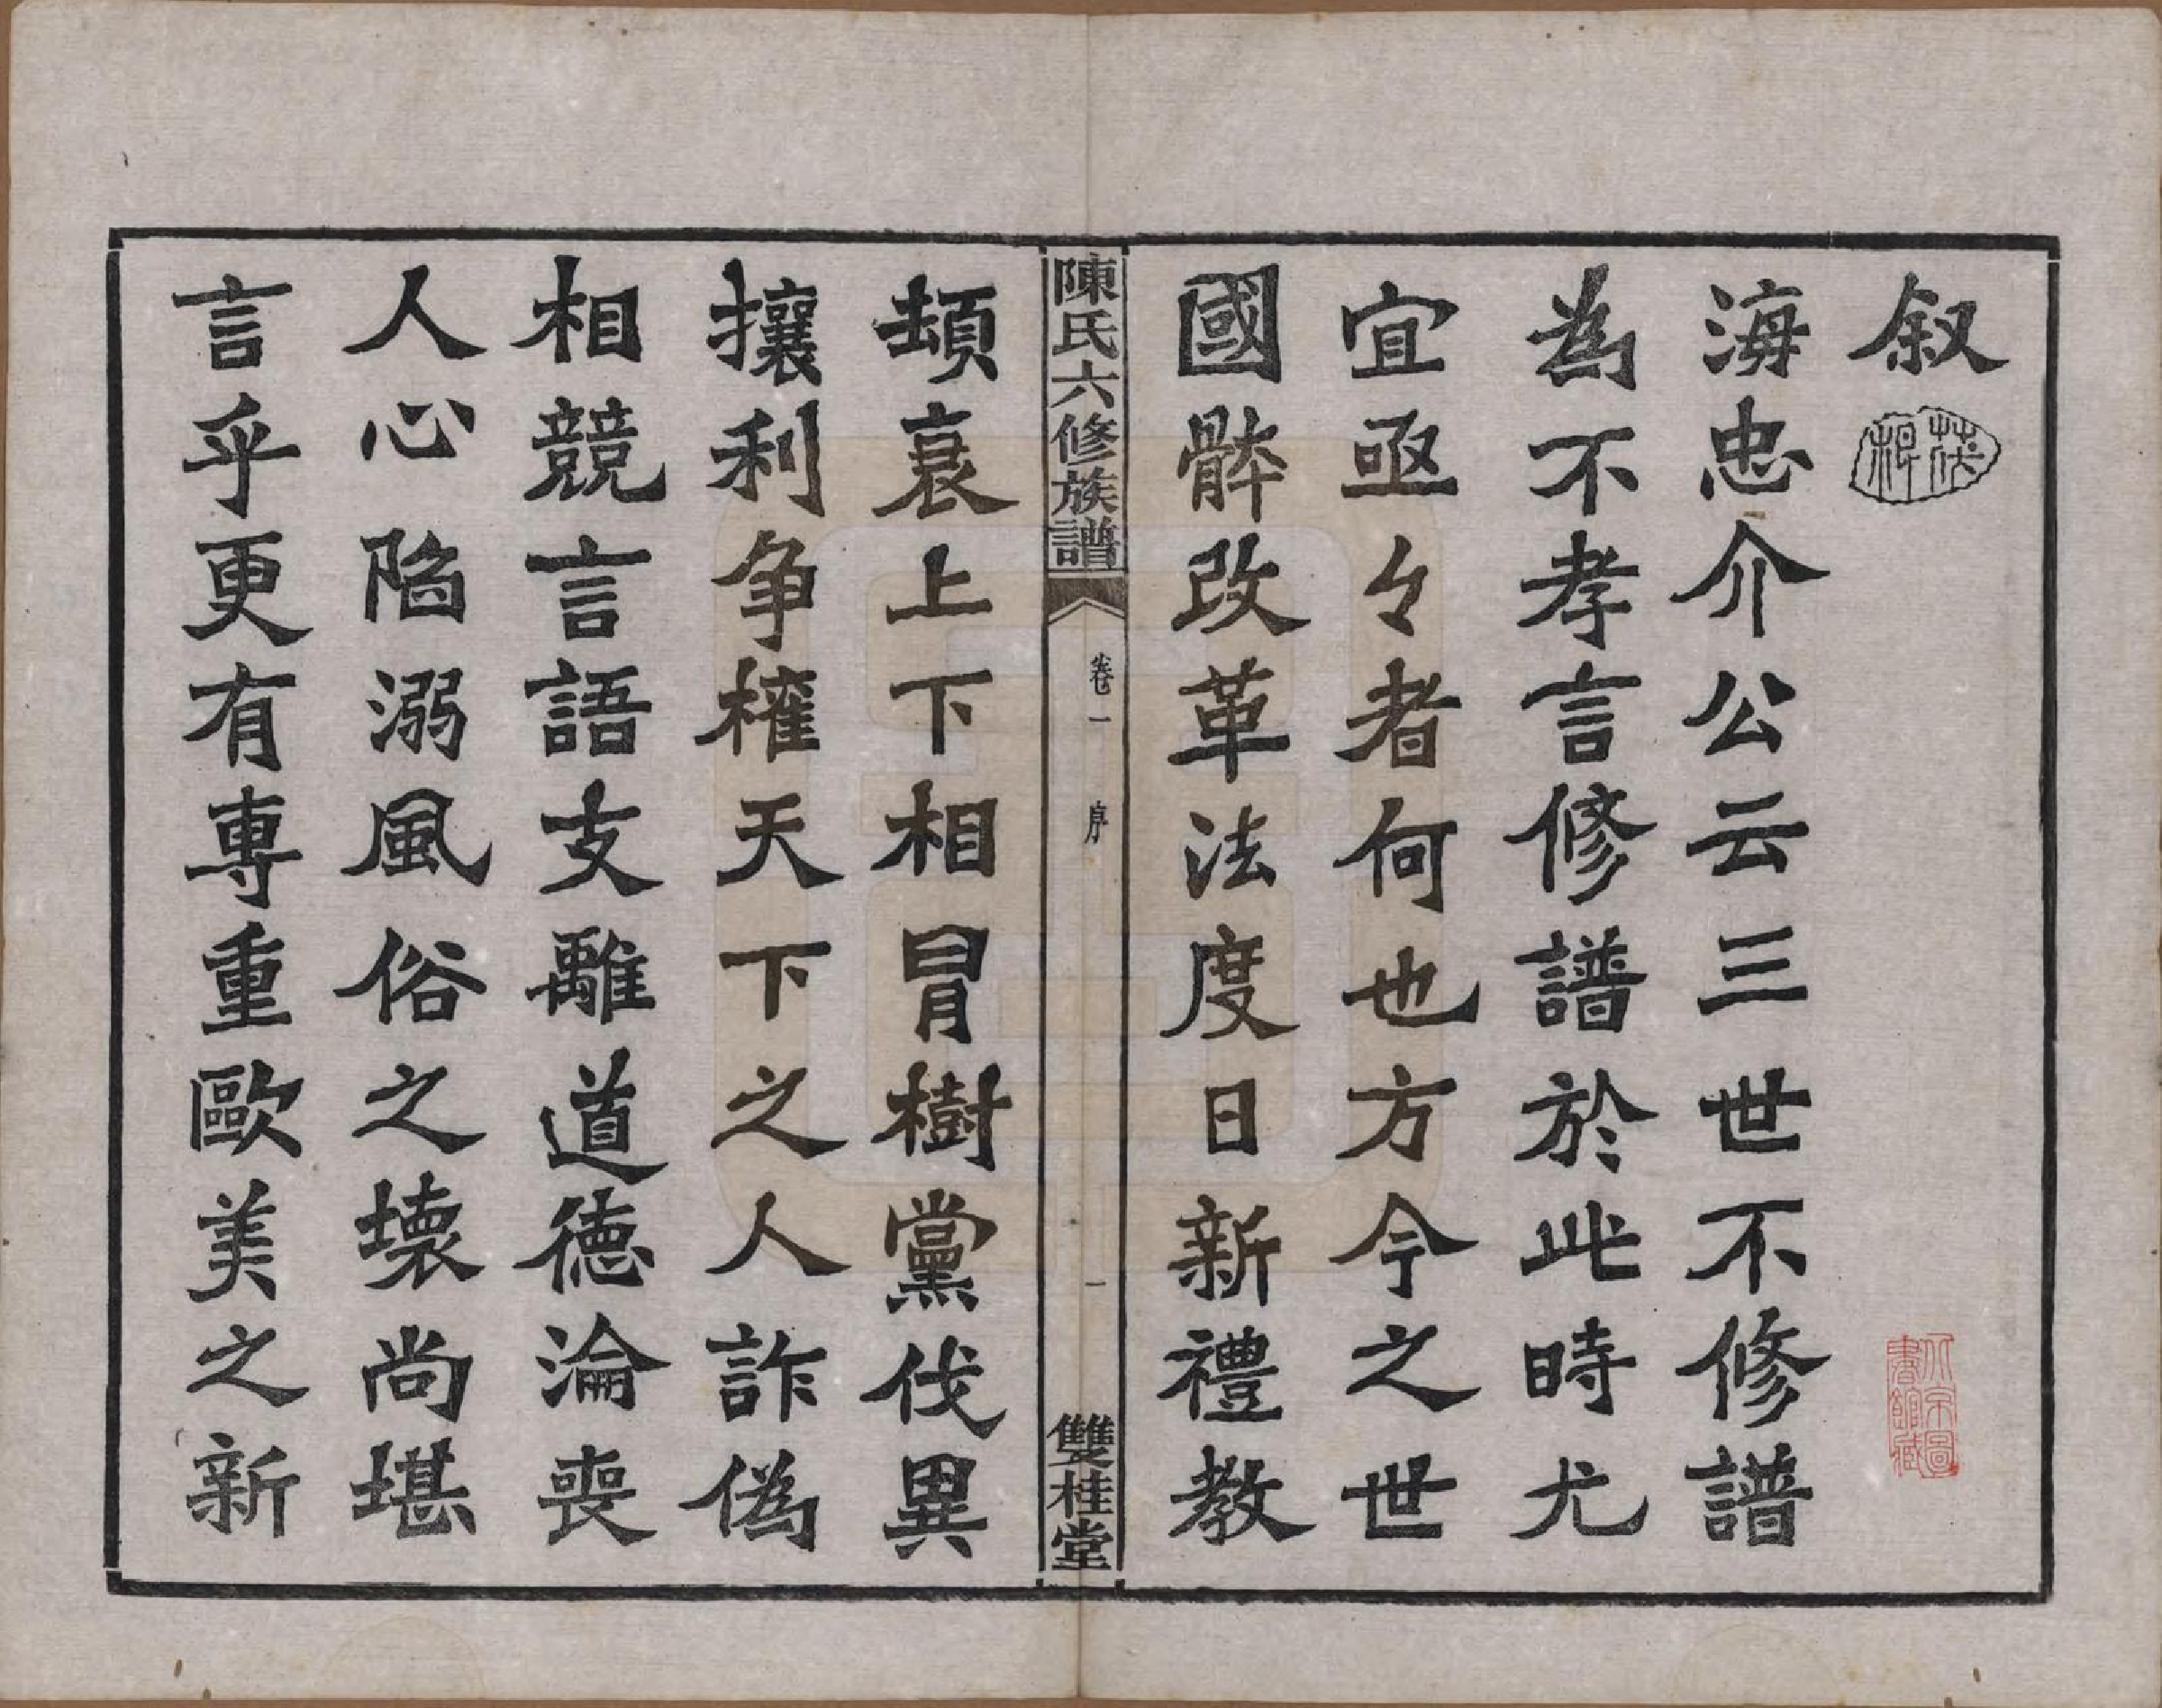 叙
海忠介公云三世不修譜
為不孝言修譜於此時尤
宜亟々者何也方今之世
國骵改革法度日新禮教
頹衰上下相冒樹黨伐異
攘利争榷天下之人詐偽
相競言語支離道德淪喪
人心陷溺風俗之壞尚堪
言乎更有專重歐美之新
陳氏六修族譜
卷一
序
一
雙桂堂